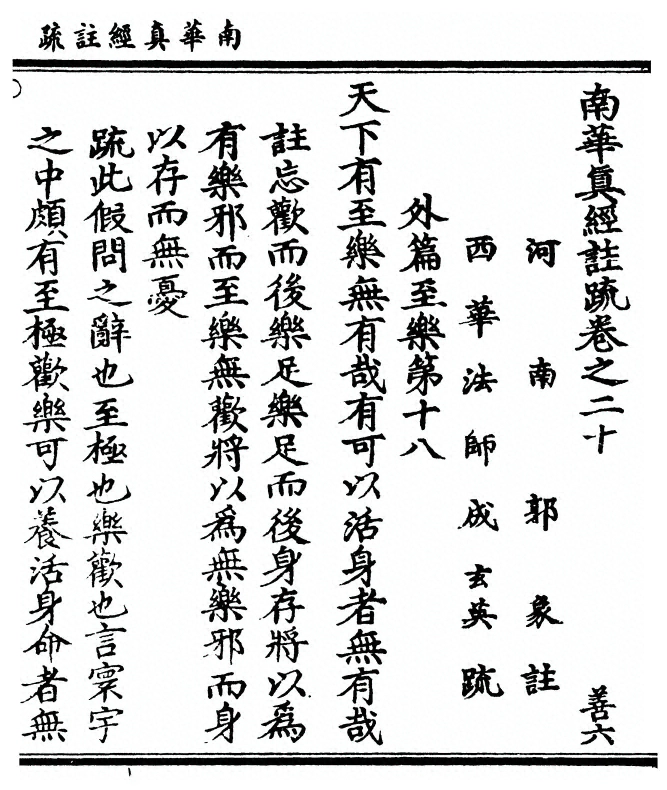 南華真經註疏
南華真經註疏卷之二十 善六
河南郭象註
西華法師成玄英疏
外篇至樂第十八
天下有至樂無有哉有可以活身者無有哉
註忘歡而後樂足樂足而後身存將以為
有樂邪而至樂無歡將以為無樂邪而身
以存而無憂
疏此假問之辭也至極也樂歡也言寰宇
之中頗有至極歡樂可以養活身命者無